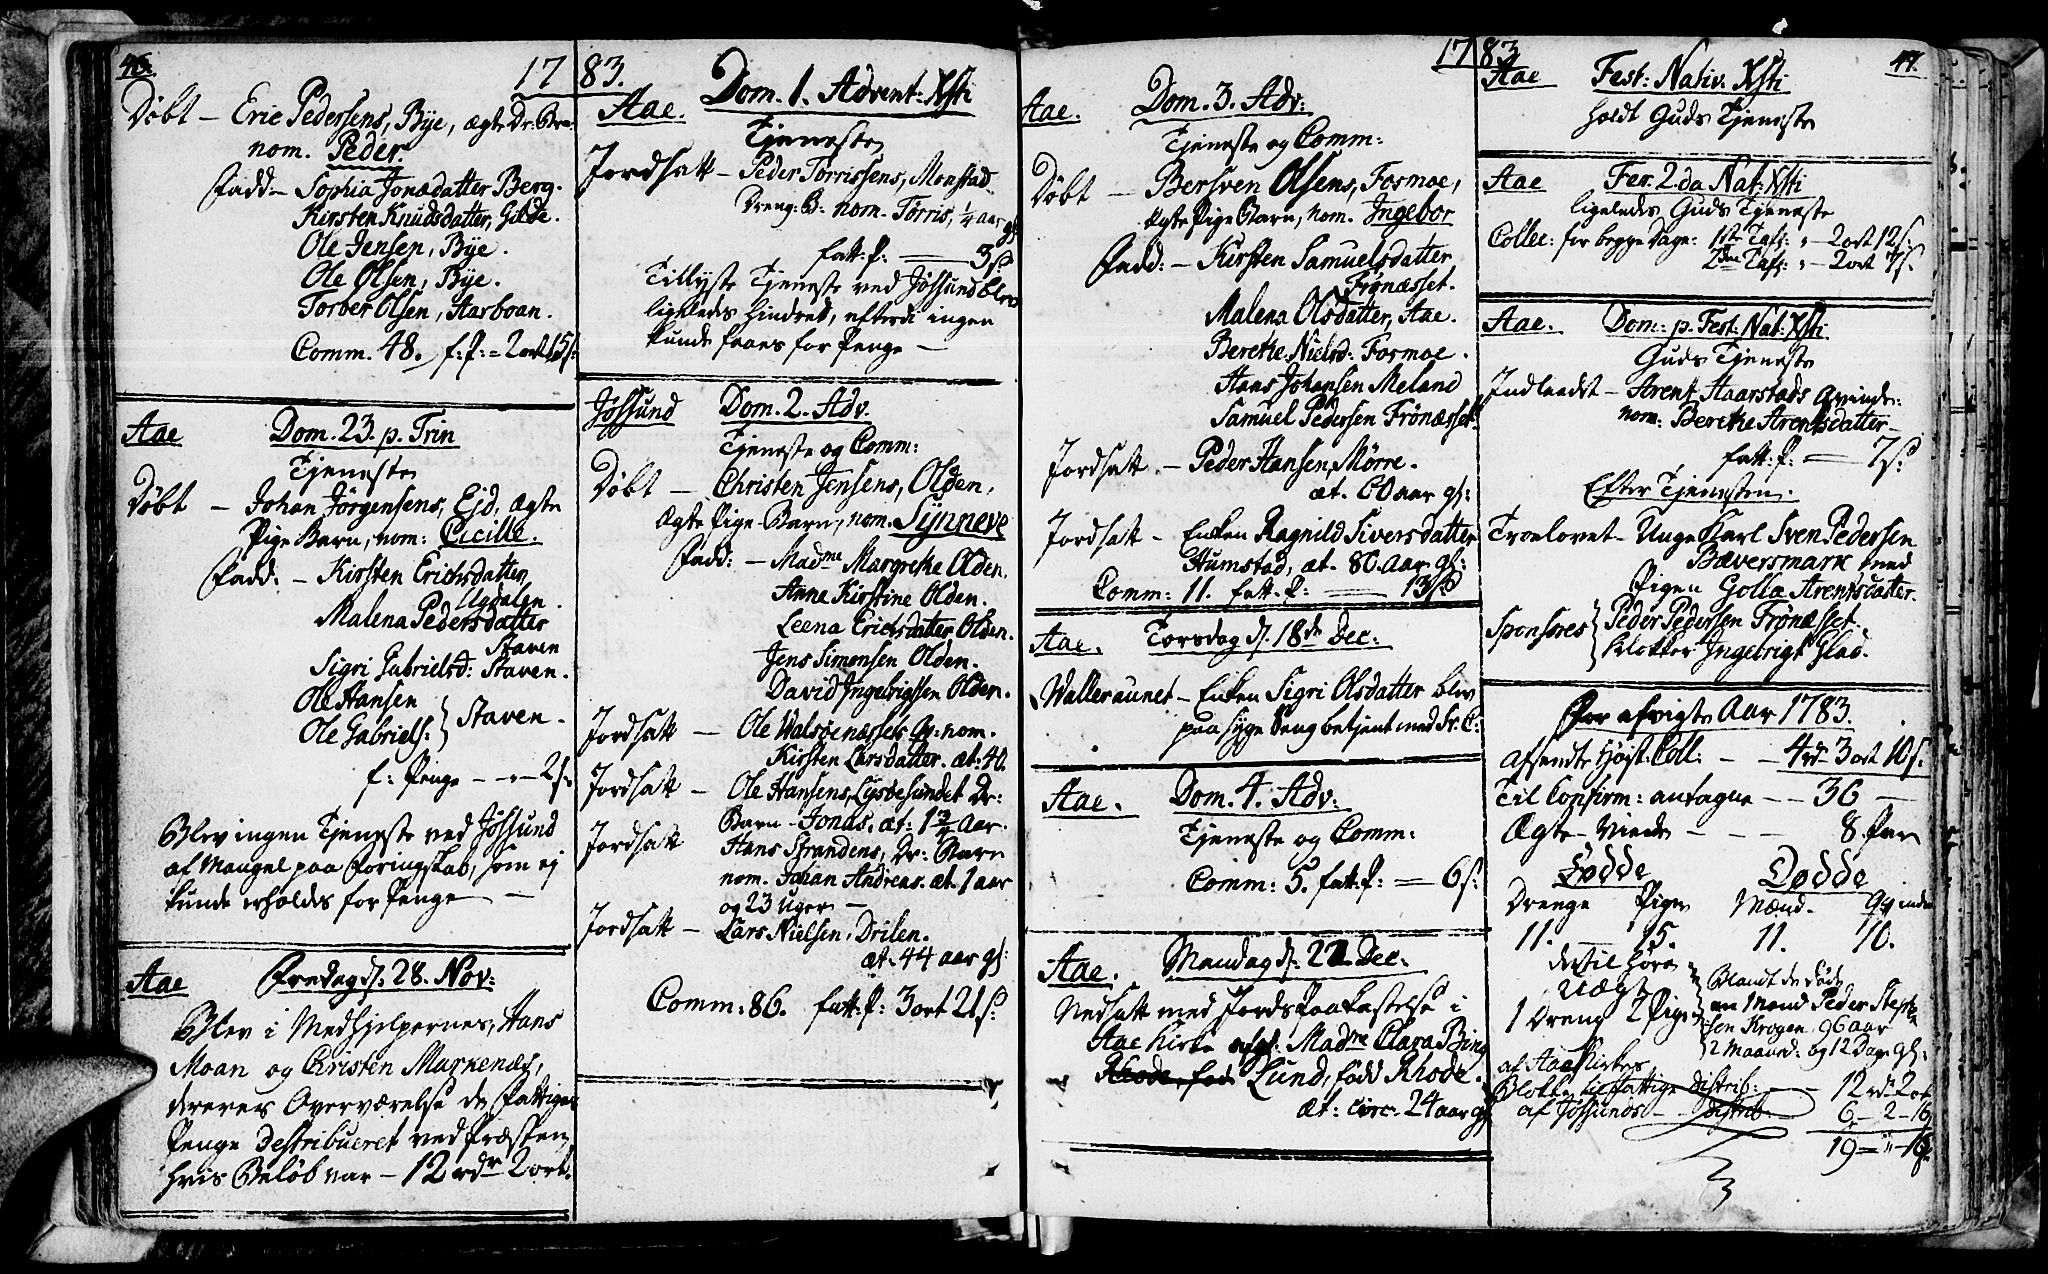 46.
1783.
Døbt – Eric Pedersens, Bye, ægte Dr: Barn
nom. Peder.
Fadd – Sophia Jonædatter Berg.
Kirsten Knudsdatter, Gilde.
Ole Jensen, Bye.
Ole Olsen, Bye.
Torber Olsen, Aarboan.
Comm. 48. f: P: = 2 ort 15 s:
Aae Dom. 23. p. Trin
Tjeneste
Døbt – Johan Jørgensens, Eid, ægte
Pige Barn, nom: Cicille.
Fadd: – Kirsten Erichsdatter
Ugdalen.
Malena Pedersdatter
Staven
Sigri Gabrielsd: Staven.
Ole Hansen
Ole Gabriels: } Staven.
f: Penge – „ – 2 s:
Blev ingen Tjeneste ved Jøssund
af Mangel paa Foringskab, som ej
kunde erholdes for Penge –
Aae Fredag d. 28. Nov:
Blev i Medhjelpernes, Hans
Moan og Christen Markenæs,
dereres Overværelse de fattiges
Penge Destribueret ved Præsten,
hvis Beløb var – 12 rdr 2 ort.
Aae. Dom. 1. Advent: Xsti
Tjeneste
Jordsatt – Peder Tørrissens, Monstad
Dreng: B: nom. Tørris, ¼ aar gl:
fatt: P: — 3 s
Tillyste Tjeneste ved Jøssund blev
ligeledes hindred, efterdi ingen
kunde faaes for Penge –
Jøssund Dom. 2. Adv.
Tjeneste og Comm:
Døbt – Christen Jensens, Olden,
ægte Pige-Barn, nom. Synneve
Fadd: – Madme Margrethe Olden.
Anne Kirstine Olden.
Leena Erichsdatter Olden.
Jens Simonsen Olden.
David Ingebrigtsen Olden.
Jordsatt – Ole Walsøenæssets Qv: nom.
Kirsten Larsdatter. æt: 40.
Jordsatt – Ole Hansens, Lysøesundet Dr:
Barn – Jonas. æt: 1¾ Aar.
Jordsatt Hans Strandens, Dr: Barn
nom. Johan Andreas. æt. 1 aar
og 23 Uger –
Jordsatt – Lars Nielsen, Drilen.
æt. 44 aar gl:
Comm: 86. fatt: P: 3 ort 21 s:
1783
47.
Aae. Dom. 3. Adv:
Tjeneste og Comm:
Døbt – Bersven Olsens, Fosmoe,
Ægte Pige Barn, nom. Ingebor
Fadd: – Kirsten Samuelsdatter
Frønæsset.
Malena Olsdatter, Aae.
Berethe Nielsd: Fosmoe.
Hans Johansen Meland
Samuel Pedersen Frønæsset
Jordsatt. – Peder Hansen, Mørre.
æt. 60 aar gl:
Jordsatt – Enken Ragnild Siversdatter
Humstad, æt. 80. aar gl:
Comm: 11. fatt. P: — 13 s
Aae. Torsdag d. 18de Dec:
Walleraunet – Enken Sigri Olsdatter blev
paa syge Seng betjent med Sr. C:
Aae. Dom. 4. Adv:
Tjeneste og Comm:
Comm: 5. fatt: P: = 6 s:
Aae. Mandag d: 22 Dec:
Nedsatt med Jords Paakastelse i
Aae Kirke afgl. Madme Clara Bing
Rhode, fød Lund, fødd Rhode.
æt: circ: 24 aar gl
Aae Fest: Nativ. Xsti
holdt Guds Tjeneste
Aae Fer. 2da Nat: Xsti
ligeledes Guds Tjeneste
Collec: for begge Dage: 1ste Tafl: „ – 2 ort 12 s:
2den Tafl: „ – 2 ort 7 s.
Aae. Dom: p. Fest: Nat: Xsti
Guds Tjeneste
Indleedt – Arent Haarstads Qvinde:
nom: Berethe Arentsdatter –
fatt: P: — 7 s:
Efter Tjenesten.
Troelovet – Unge Karl Sven Pedersen
Bæversmark med
Pigen Golla Arentsdatter.
Sponsores { Peder Pedersen Frønæsset.
Klokker Ingebrigt Glad.
For afvigte Aar 1783.
Afsendte Højst: Coll: – – 4 rd 3 ort 10 s.
Til Confirm: antagne – – 36 –
Ægte-Viede – – – 8 Par
Fødde Dødde
Drenge Piger Mænd. Qvinder
11. 15. 11. 10.
dertil hører
Uægt
1 Dreng 2 Piger
Blandt de døde
en Mand Peder Steph
sen Krogen, 96 aar
2 Maaned: og 12 Dage gl:
af Aae Kirkes
Blokke til fattige distrib: — 12 rd 2 ort
af Jøssunds – – Distrib: 6 – 2 – 16
19 – „ – 16